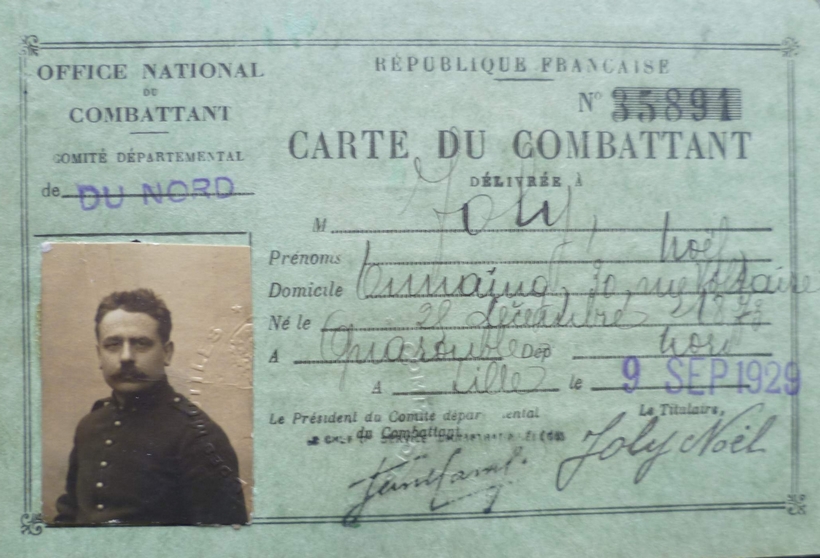 OFFICE NATIONAL
DU
COMBATTANT
COMITÉ DÉPARTEMENTAL
de DU NORD
RÉPUBLIQUE FRANÇAISE
N° 35891
CARTE DU COMBATTANT
DÉLIVRÉE À
M Joly,
Prénoms Noël
Domicile Onnaing, 30, rue Voltaire
Né le 28 décembre 1873
A Quarouble Dép Nord
A Lille le 9 SEP 1929
Le Président du Comité départemental
du Combattant
Le Titulaire,
Joly Noël